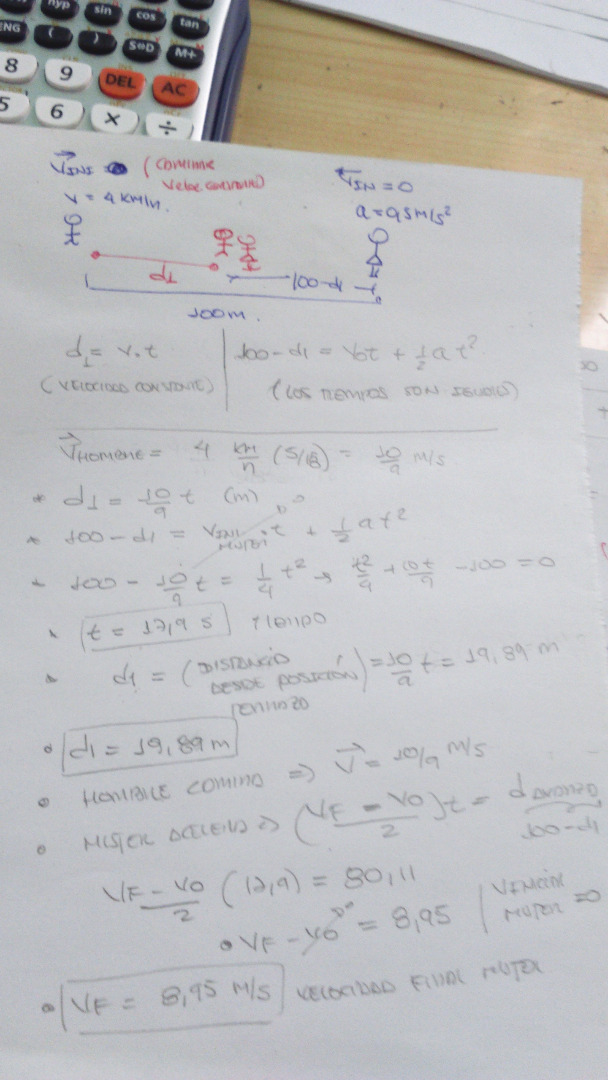 hyp
sin
cos
tan
ENG
(
)
S⇔D
M+
8
9
DEL
AC
5
6
×
÷
V⃗INI (Camina
veloc constante)
V = 4 km/h.
VIN = 0
a = 0,5 m/s²
d1
100-d1
100m.
d1 = v.t | 100-d1 = Vot + 1/2 a t²
(VELOCIDAD CONSTANTE) (LOS TIEMPOS SON IGUALES)
V⃗HOMBRE = 4 km/h (5/18) = 10/9 m/s
* d1 = 10/9 t (m)
* 100-d1 = VINI MUJER . t + 1/2 a t²
0
* 100 - 10/9 t = 1/4 t² → t²/4 + 10t/9 - 100 = 0
t = 17,9 s TIEMPO
d1 = (DISTANCIA DESDE POSICIÓN) = 10/9 t = 19,89 m
d1 = 19,89 m
HOMBRE CAMINA ⇒ V⃗ = 10/9 m/s
MUJER ACELERA ⇒ (VF - VO / 2) t = d avanzo
100-d1
VF - VO / 2 (17,9) = 80,11
VF - VO = 8,95 | MUJER = 0
0
VF = 8,95 m/s VELOCIDAD FINAL MUJER